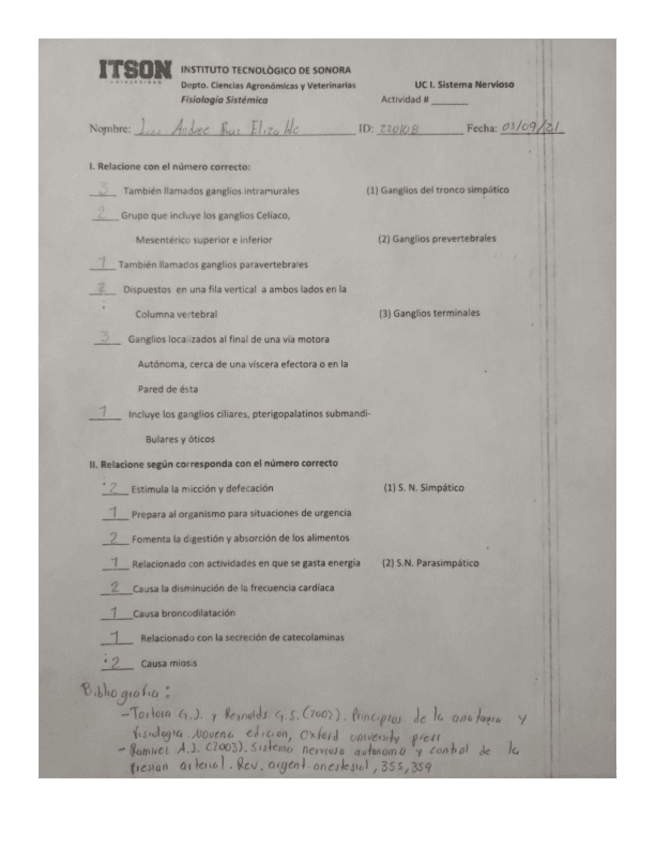 ITSON
UNIVERSIDAD
INSTITUTO TECNOLÓGICO DE SONORA
Depto. Ciencias Agronómicas y Veterinarias UC I. Sistema Nervioso
Fisiología Sistémica Actividad # ______
Nombre: Andree Elizalde ID: 220108 Fecha: 03/09/21
I. Relacione con el número correcto:
3 También llamados ganglios intramurales (1) Ganglios del tronco simpático
2 Grupo que incluye los ganglios Celiaco,
Mesentérico superior e inferior (2) Ganglios prevertebrales
1 También llamados ganglios paravertebrales
2 Dispuestos en una fila vertical a ambos lados en la
Columna vertebral (3) Ganglios terminales
3 Ganglios localizados al final de una vía motora
Autónoma, cerca de una víscera efectora o en la
Pared de ésta
1 Incluye los ganglios ciliares, pterigopalatinos submandi-
Bulares y óticos
II. Relacione según corresponda con el número correcto
2 Estimula la micción y defecación (1) S. N. Simpático
1 Prepara al organismo para situaciones de urgencia
2 Fomenta la digestión y absorción de los alimentos
1 Relacionado con actividades en que se gasta energía (2) S.N. Parasimpático
2 Causa la disminución de la frecuencia cardíaca
1 Causa broncodilatación
1 Relacionado con la secreción de catecolaminas
2 Causa miosis
Bibliografia:
- Tortora G.J. y Reynolds G.S. (2002). Principios de la anatomia y
fisiologia. Novena edicion, Oxford university press
- Ramirez A.J. (2003). Sistema nervioso autonomo y control de la
presion arterial. Rev. argent. anestesiol, 355, 359